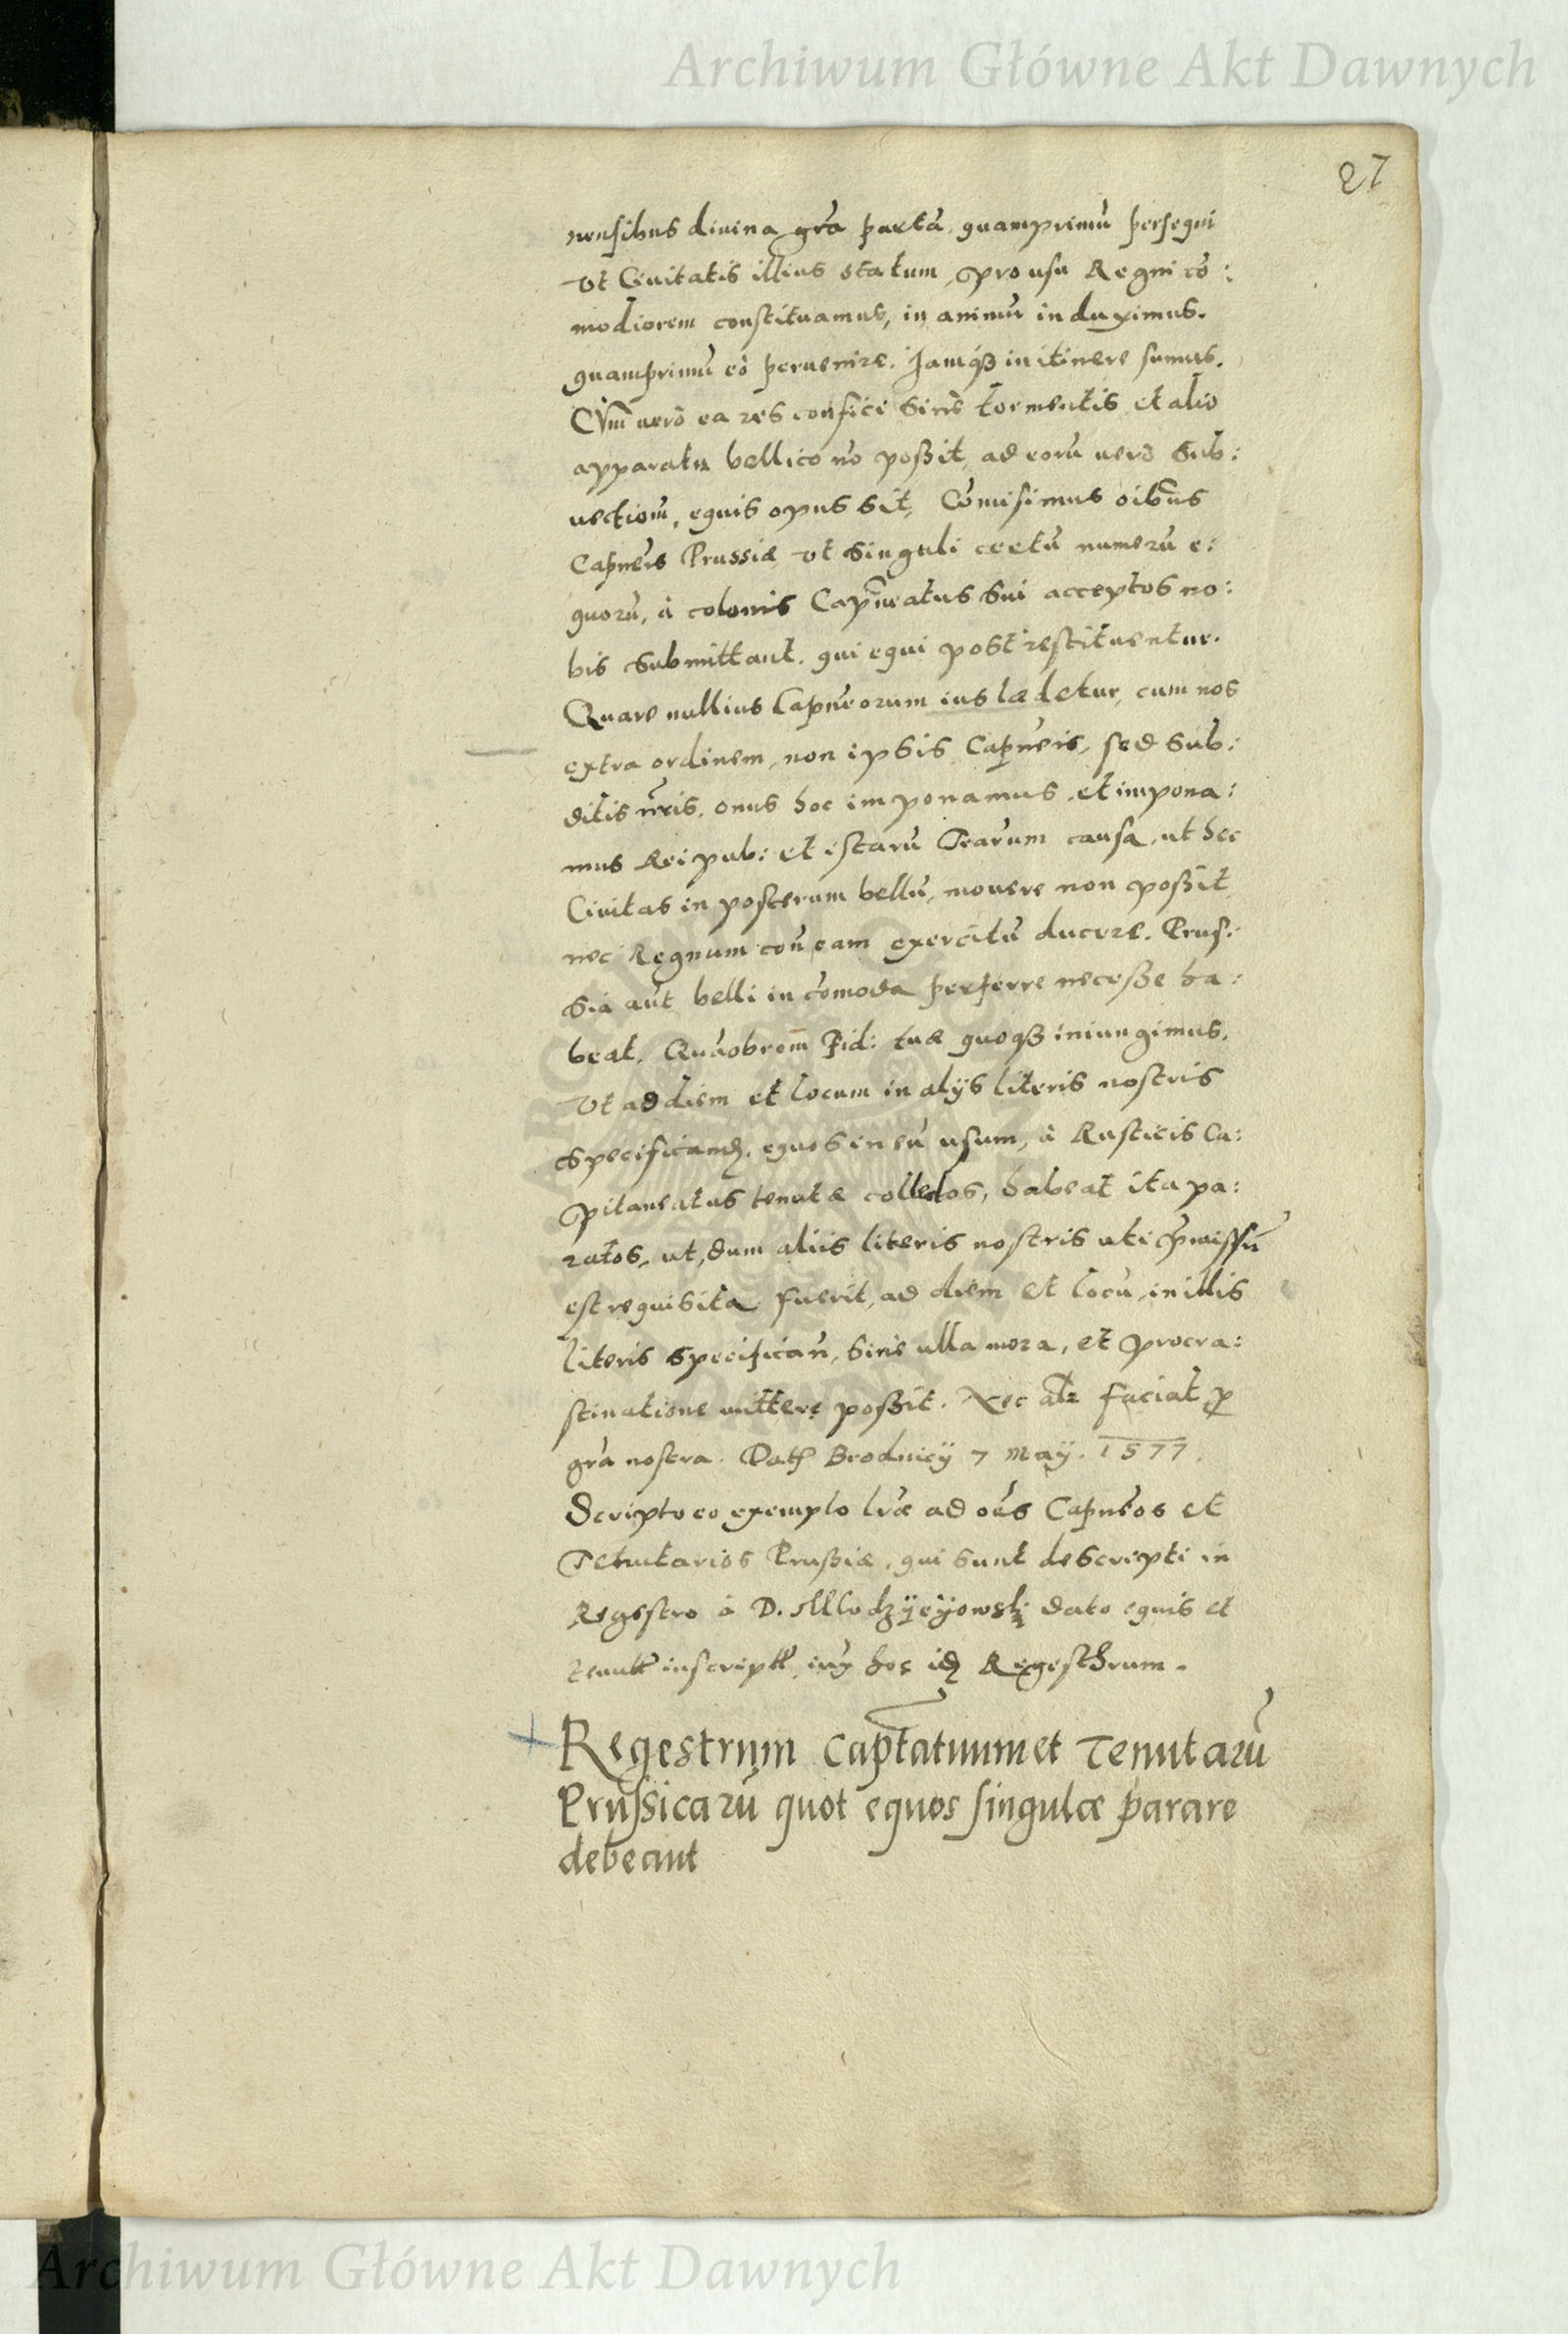 Archiwum Główne Akt Dawnych
27
nensibus diuina gr̃a partã, quamprimũ persequi
vt Ciuitatis illius statum, pro usu Regni cõ:
modiorem constituamus, in animũ induximus.
quamprimũ eò peruenire. Jamqꝫ in itinere sumus.
Cvm̃ uerò ea res confici sine tormentis et alio
apparatu bellico nõ poßit, ad eorũ uerò sub:
uectiom̃, equis opus sit, Com̃isimus oib̃us
Capneis Prussiæ vt singuli certũ numerũ e:
quorũ, à colonis Capñeatus sui acceptos no:
bis submittant. qui equi post restituentur.
Quare nullius Capneorum ius lædetur, cum nos
extra ordinem, non ipsis Capneis, sed sub:
ditis nr̃is, onus hoc imponamus, et impona:
mus Rei pub: et istarũ Terarum causa, ut hec
Ciuitas in posterum bellũ, mouere non poßit,
nec Regnum con̄ eam exercitũ ducere. Prus:
sia aut̃ belli incom̃oda perferre neceße ha:
beat. Quãobrem̃ Fid: tuæ quoqꝫ iniungimus,
vt ad diem et locum in alijs literis nostris
specificand. equos in eũ usum, à Rusticis Ca:
pitaneatus tenutæ collectos, habeat ita pa:
ratos, ut, dum aliis literis nostris uti p̃missũ
est requisita fuerit, ad diem et locũ, in illis
literis specifican̄, sine ulla mora, et procra:
stinatione mittere poßit. Nec alr̃ faciat ꝓ
gr̃a nostra. Dat Brodnicÿ 7 Maÿ. 1577.
Scripto eo exemplo lr̃æ ad oẽs Capneos et
Tenutarios Prußiæ, qui sunt descripti in
Regestro à D. Mlodzÿeÿowsk: dato equis et
tenutt inscriptt, iux̃ hoc id Regesthrum.
Regestrum Capt̃atuum et Tenutarũ
Prussicarũ quot equos singulæ parare
debeant
Archiwum Główne Akt Dawnych